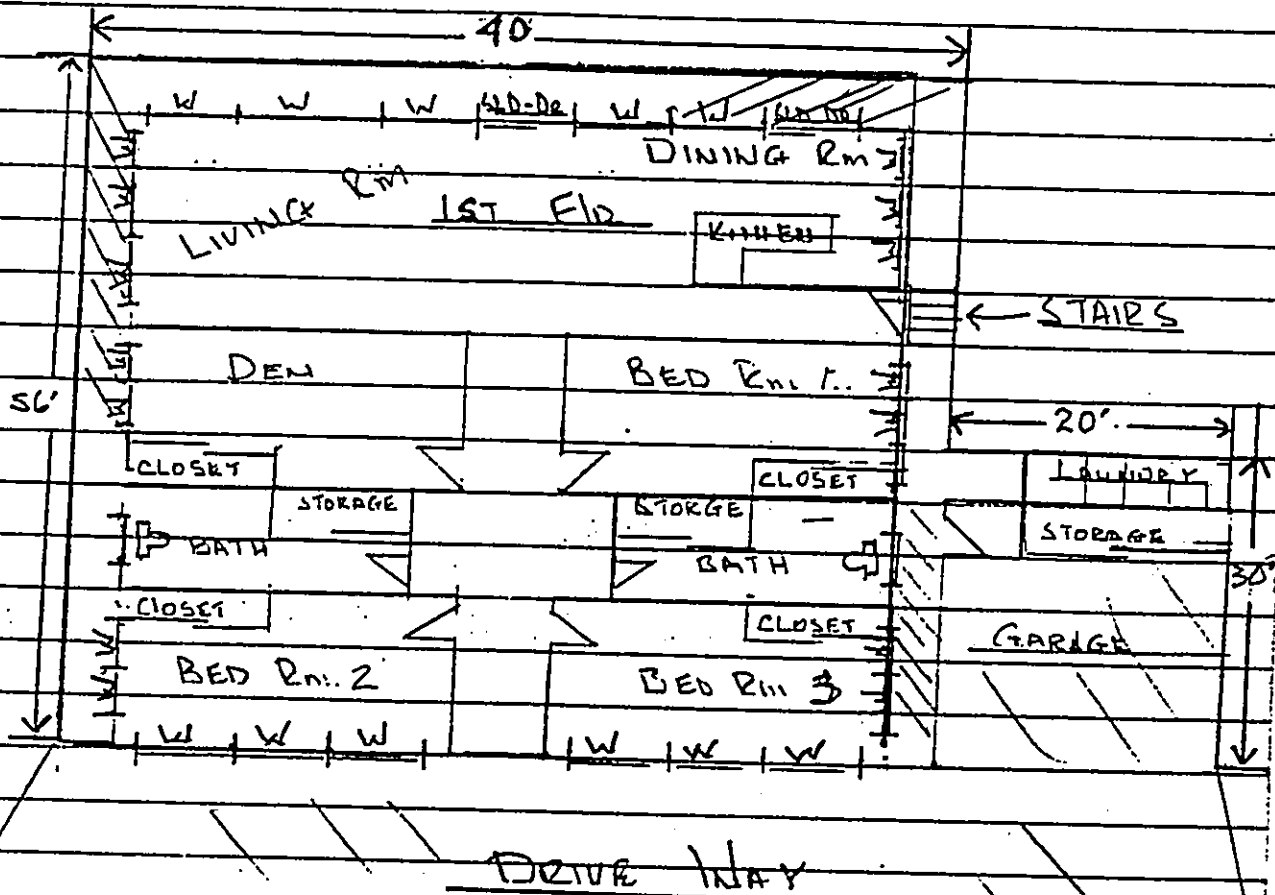 40'
W W W SLD-DR W W SLD DR
W
W
W
W
W
W
DINING Rm
W
W
W
LIVING Rm
1ST Flr
KITHEN
STAIRS
DEN
BED Rm. 1.
W
W
56'
20'
CLOSET
CLOSET
LAUNDRY
STORAGE
STORGE
STORAGE
BATH
BATH
30'
CLOSET
CLOSET
GARAGE
W
W
BED Rm. 2
BED Rm 3
W W W
W W W
DRIVE WAY